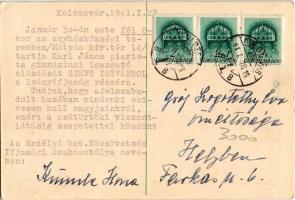 Kolozsvár, 1941. I. 27.
Január 30-án este fél 6-
kor az egyházközségi te-
remben/Mátyás kir. tér 14/
tartja Karl János piaris-
ta gimnáziumi igazgató
előadását SZENT ISTVÁNRÓL
a leányifjuság részére.
Tudjuk, hogy a felszaba-
dult hazában mindenki szí-
vesen hall nagyjainkról,
ezért a csütörtöki viszont-
látásig szeretettel köszönt
Az Erdélyi kat. Nőszövetség
Ifjusági Szakosztálya nevé-
ben:
Ilona
Gróf
őméltósága
3000
Helyben
Farkas u. 6.